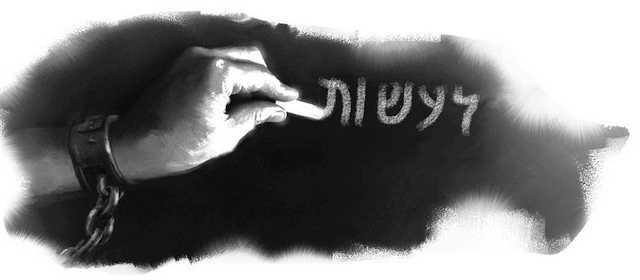 לעשות